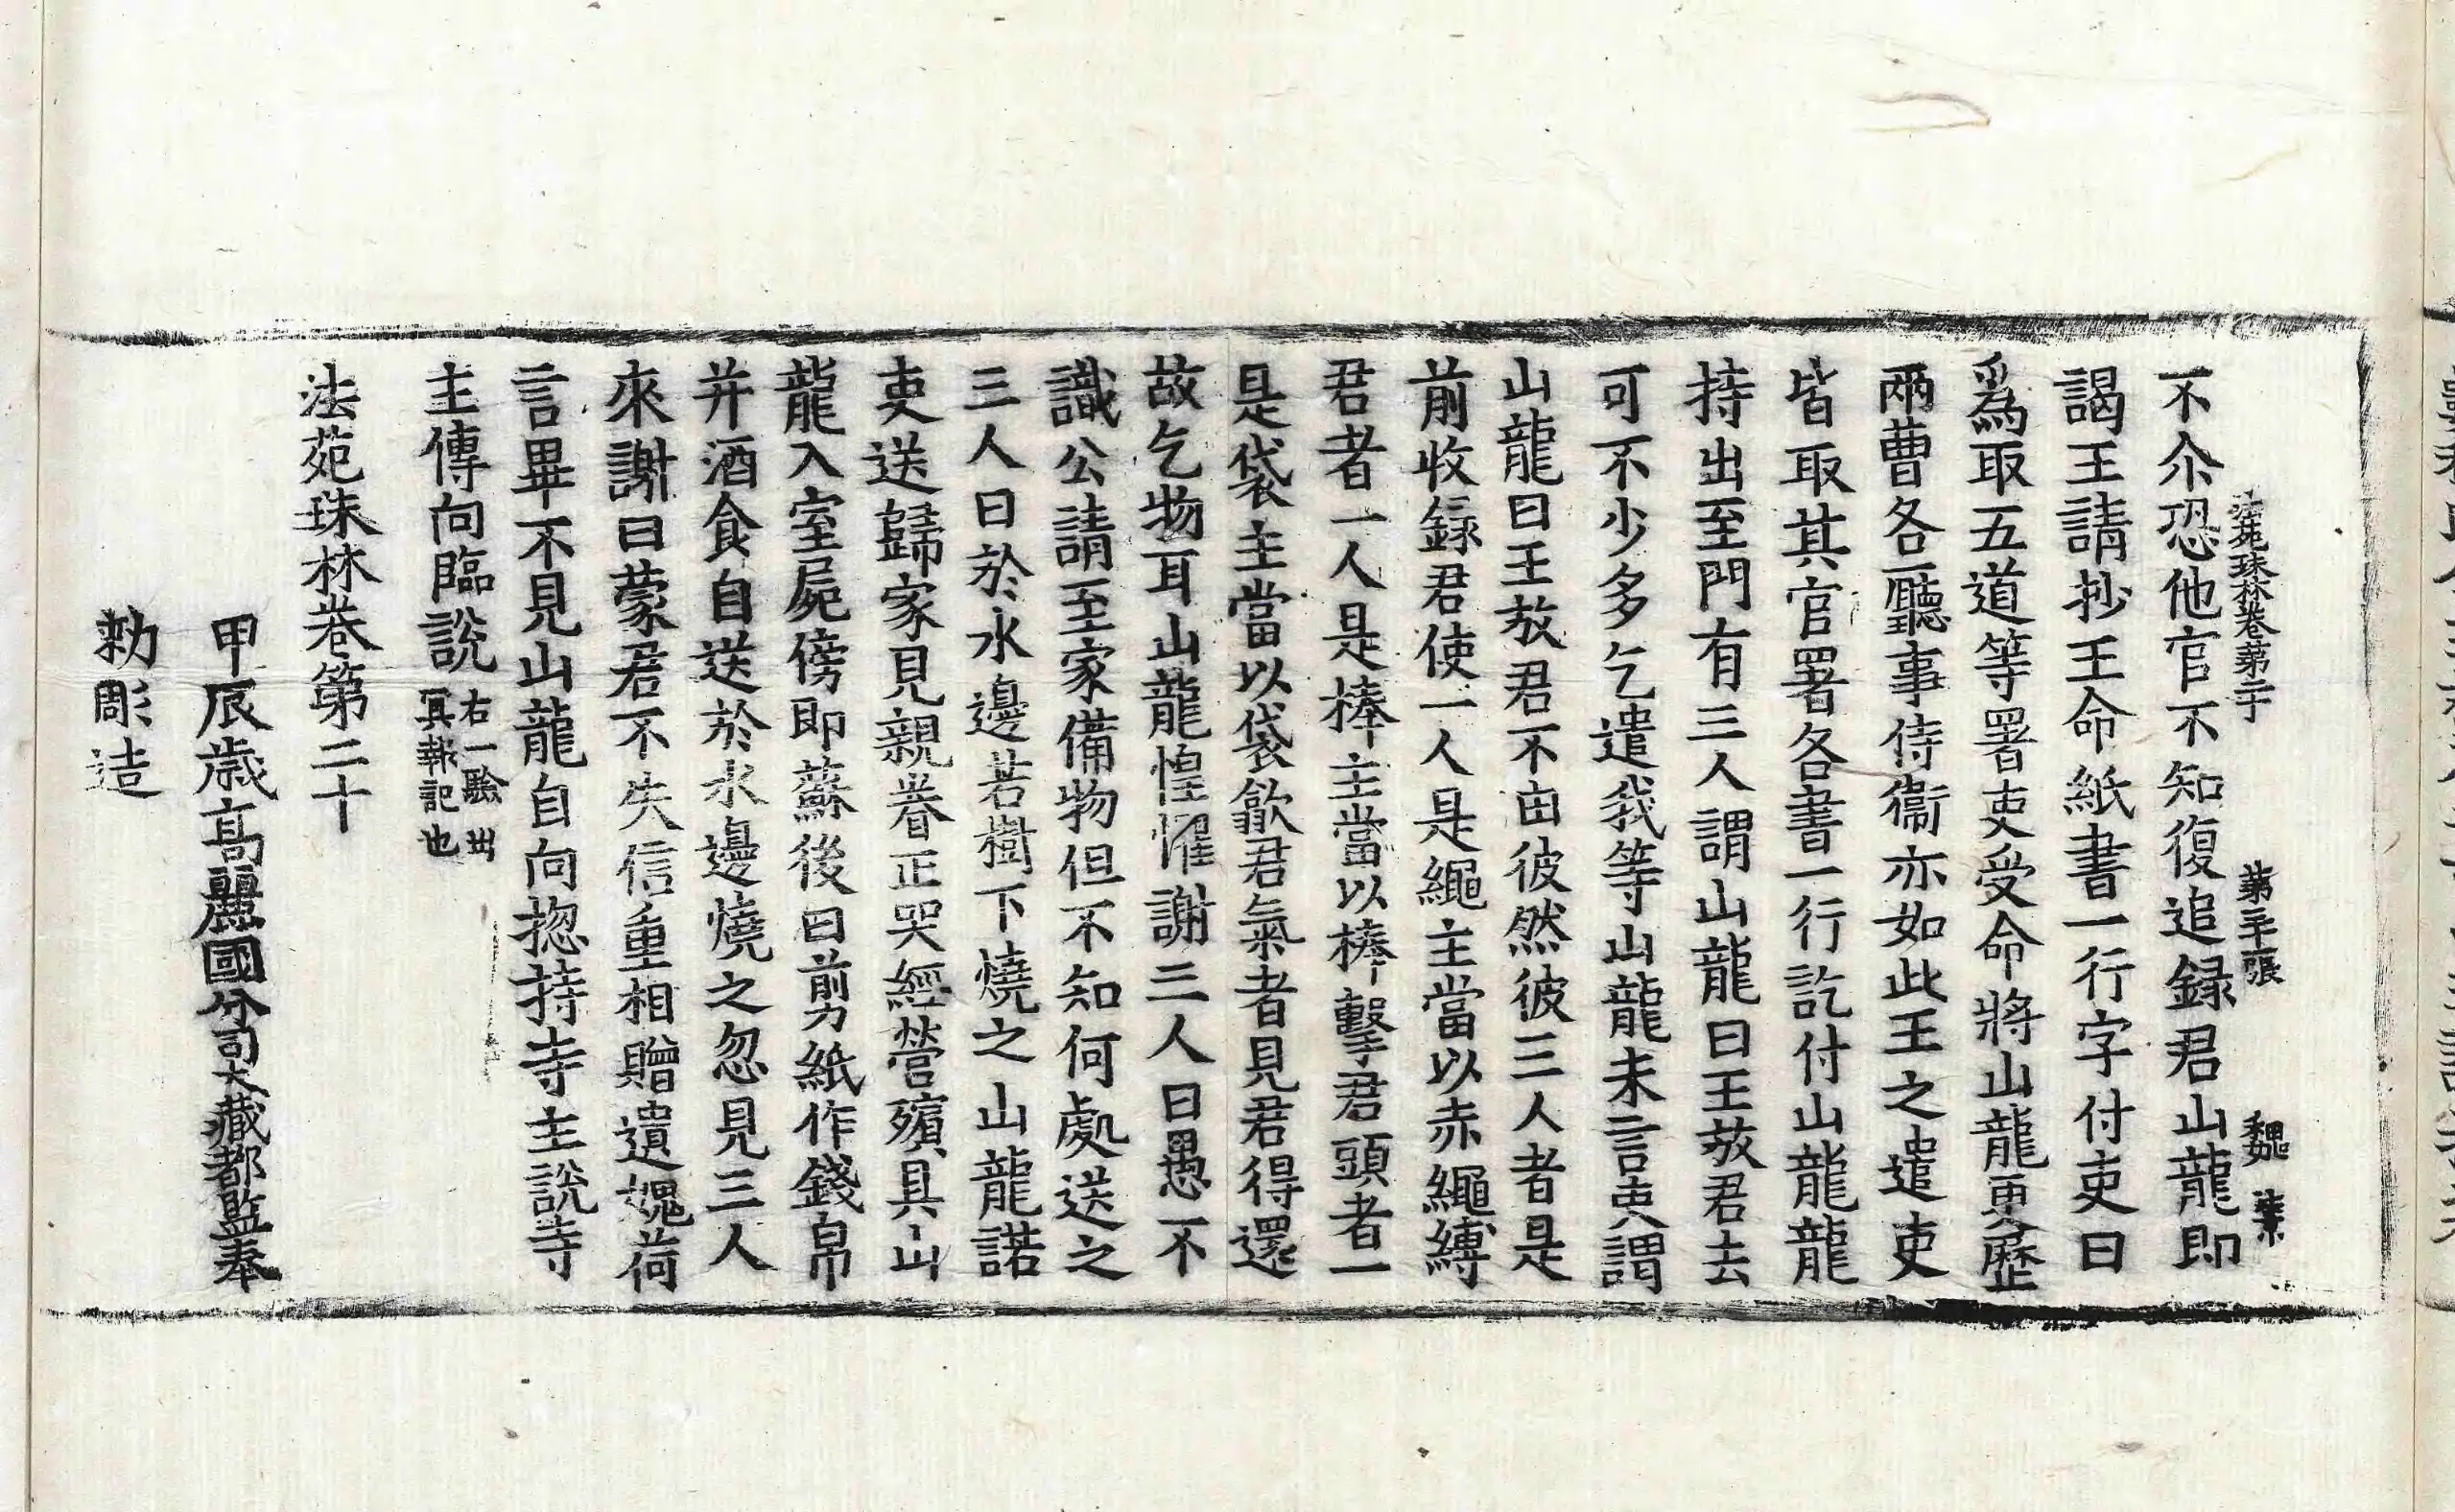 法苑珠林卷第二十 第三十張 魏
不尒恐他官不知復追録君山龍即
謁王請抄王命紙書一行字付吏曰
爲取五道等署吏受命將山龍更歷
兩曹各廳事侍衞亦如此王之遣吏
皆取其官署各書一行訖付山龍龍
持出至門有三人謂山龍曰王放君去
可不少多乞遣我等山龍未言吏謂
山龍曰王放君不由彼然彼三人者是
前收録君使一人是繩主當以赤繩縛
君者一人是棒主當以棒擊君頭者一
是袋主當以袋歙君氣者見君得還
故乞物耳山龍惶懼謝三人曰愚不
識公請至家備物但不知何處送之
三人曰於水邊若樹下燒之山龍諾
吏送歸家見親眷正哭經營殯具山
龍入室屍傍即蘇後曰剪紙作錢帛
并酒食自送於水邊燒之忽見三人
來謝曰蒙君不失信重相贈遺媿荷
言畢不見山龍自向揔持寺主說寺
主傳向臨說右一驗出冥報記也
法苑珠林卷第二十
甲辰歲高麗國分司大藏都監奉
勑彫造